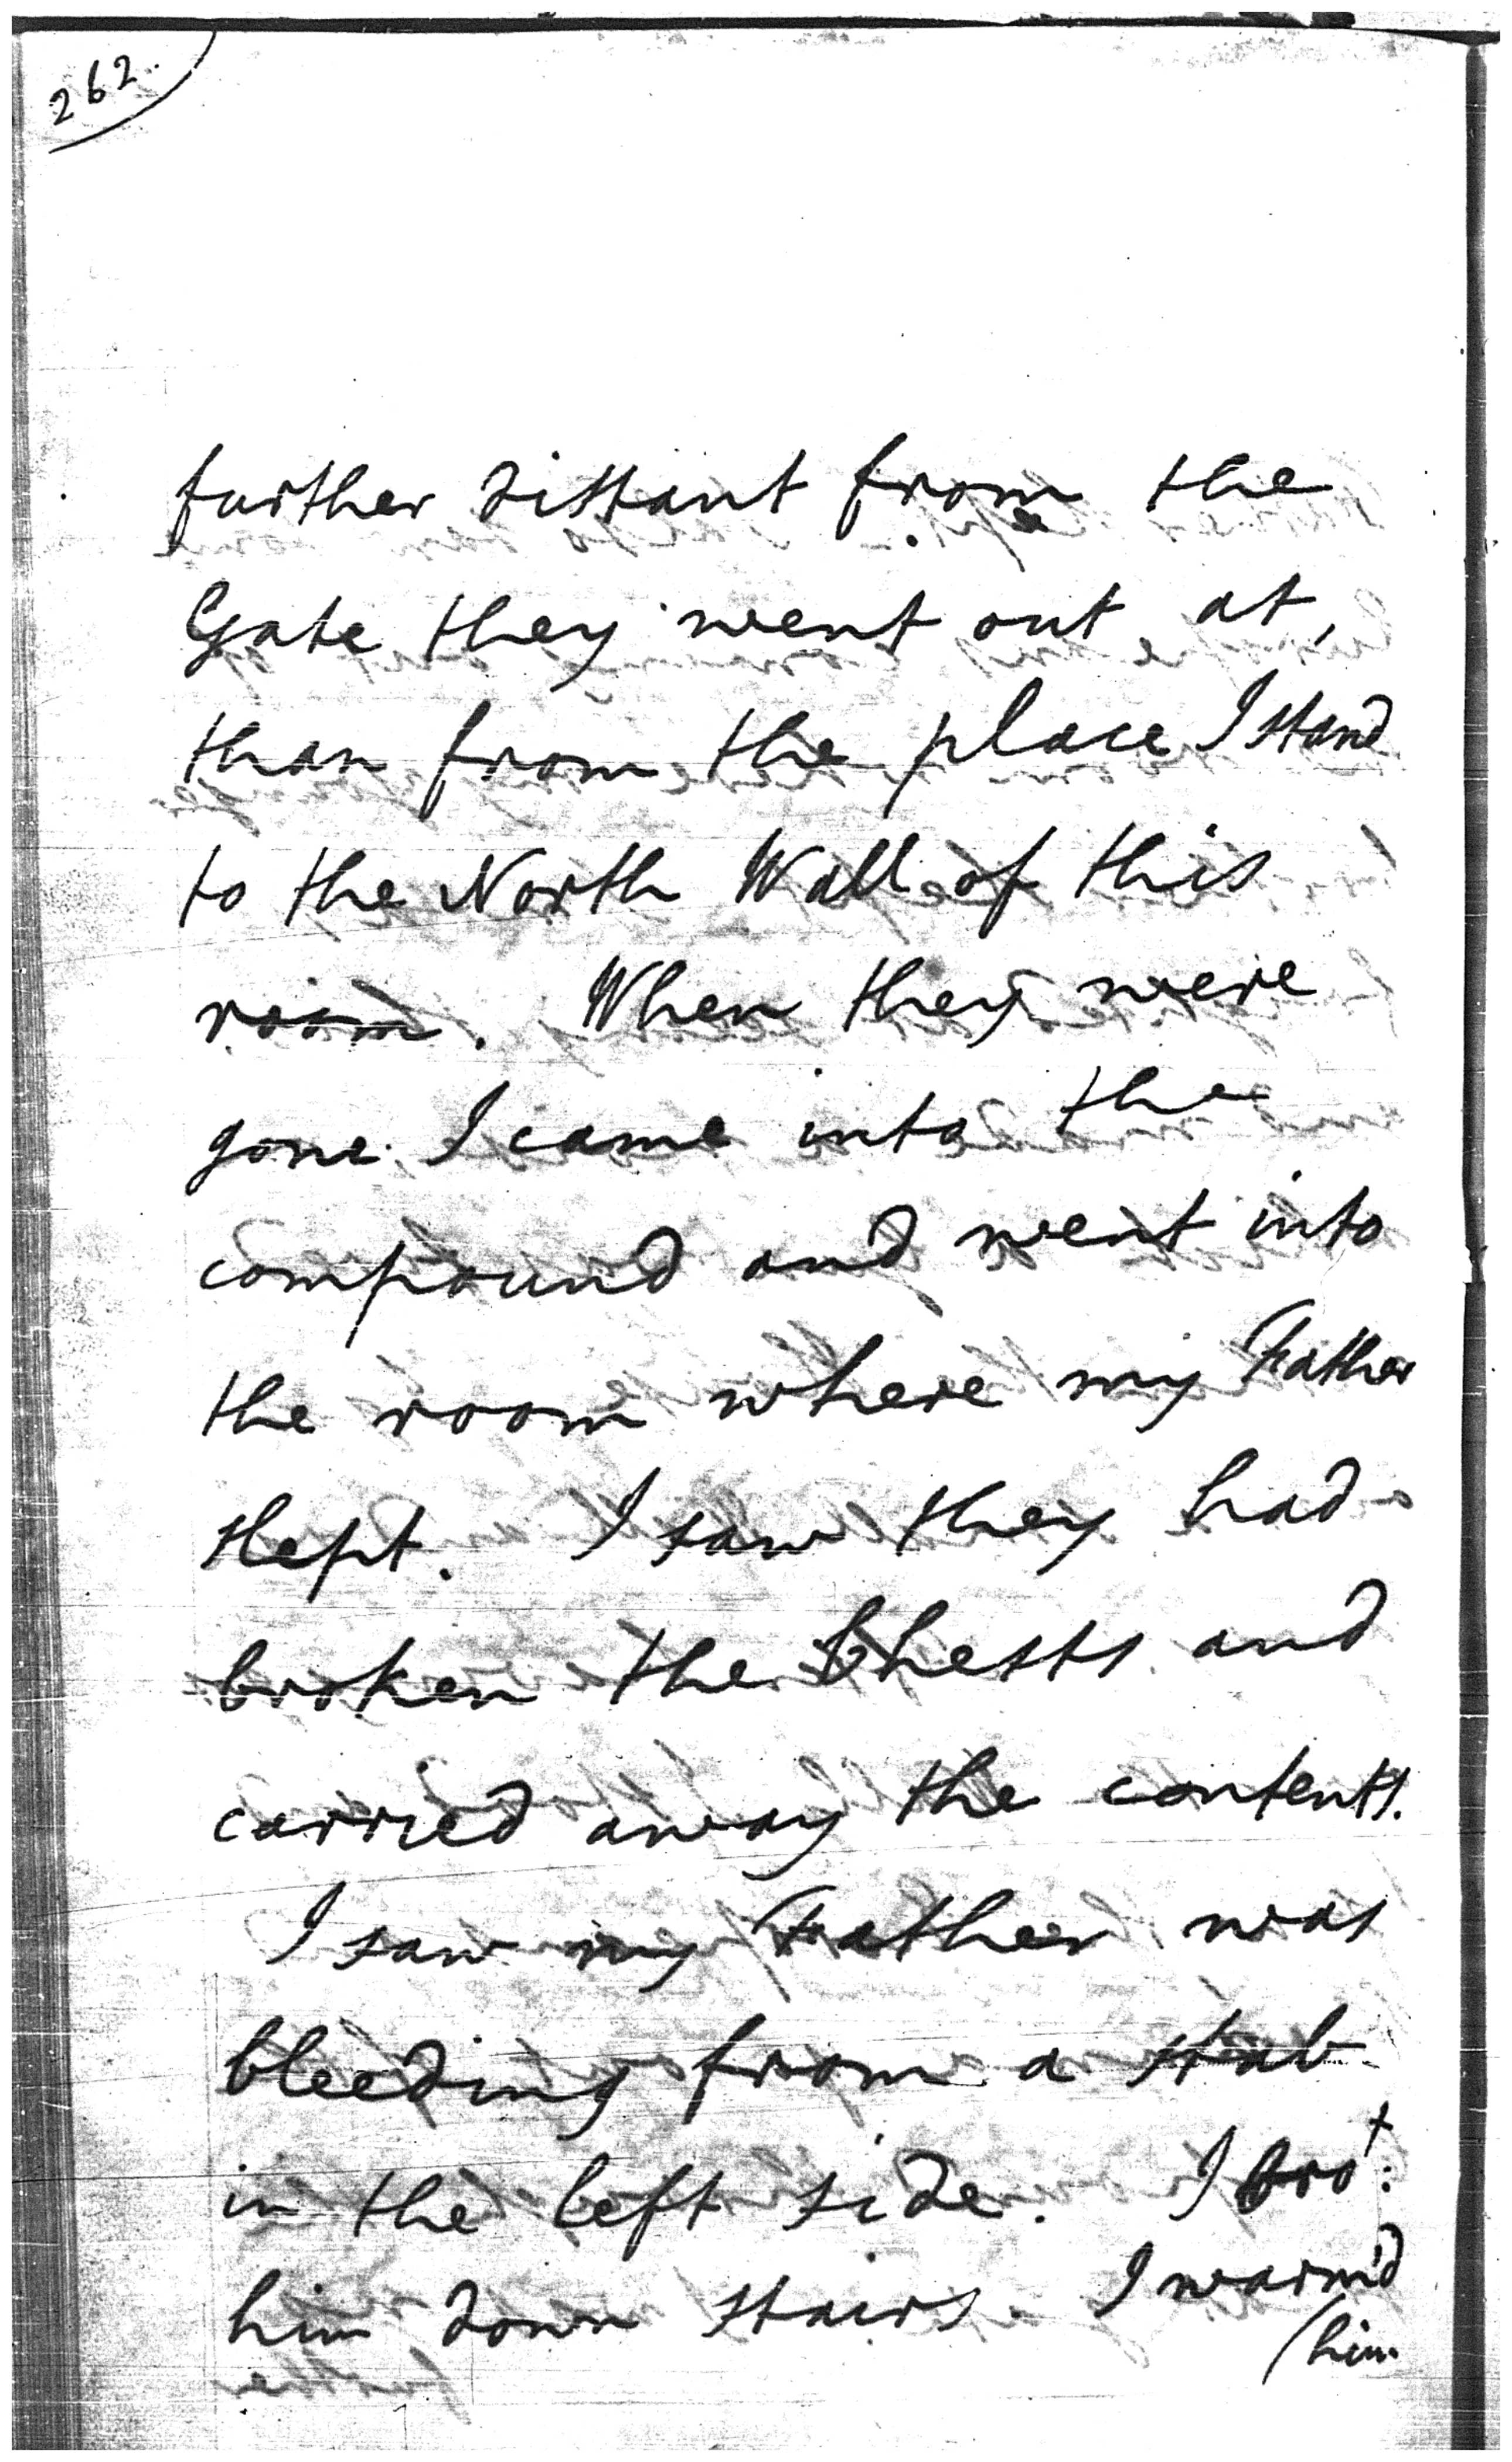 262.
further distant from the
Gate they went out at,
than from the place I stand
to the North Wall of this
room. When they were
gone I came into the
compound and went into
the room where my Father
slept. I saw they had
broken the Chests and
carried away the contents.
I saw my Father was
bleeding from a stab
in the left side. I bro.t
him down stairs. I warm'd
(him